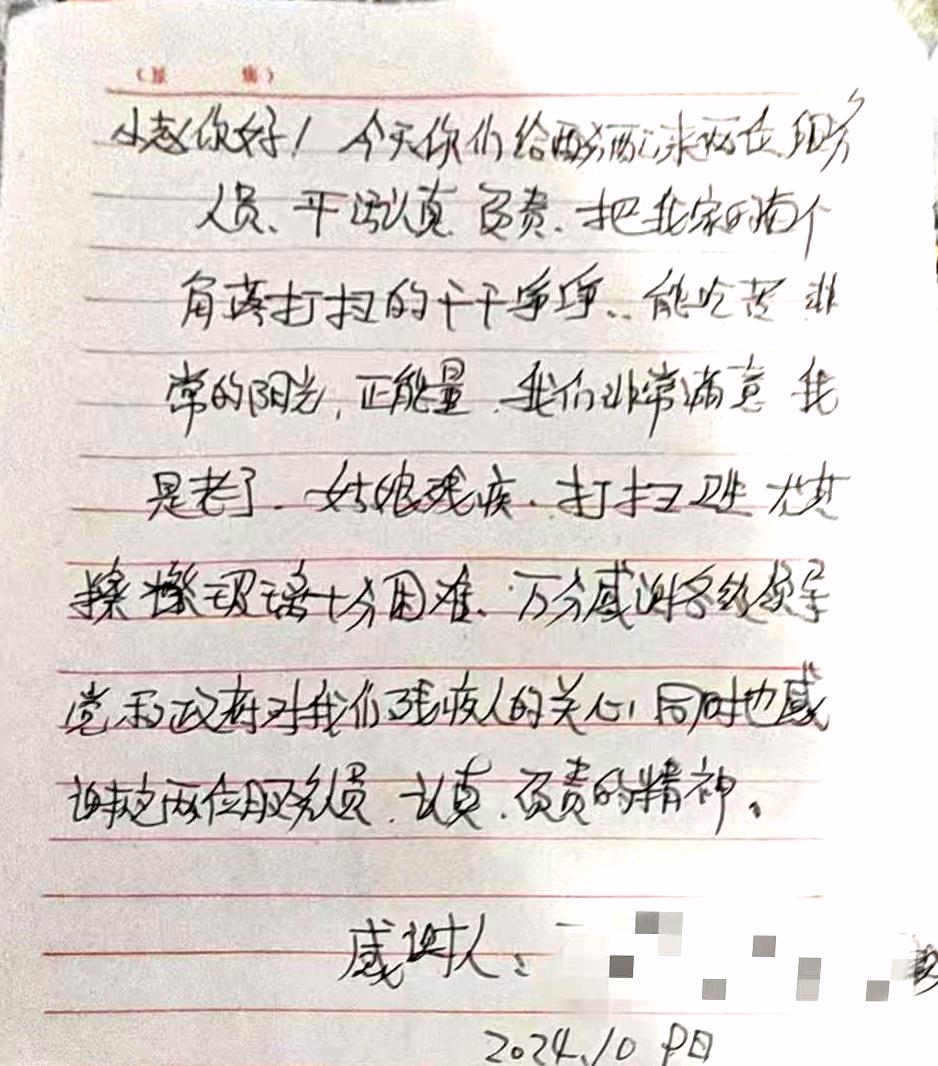 小赵你好！今天你们给我们派来两位服务
人员、干活认真 负责、把我家的每个
角落打扫的干干净净、能吃苦 非
常的阳光，正能量，我们非常满意 我
是老了、姑娘残疾、打扫卫生 尤其
擦玻璃十分困难、万分感谢各级领导
党和政府对我们残疾人的关心，同时也感
谢这两位服务人员、认真、负责的精神。
感谢人：
2024.10